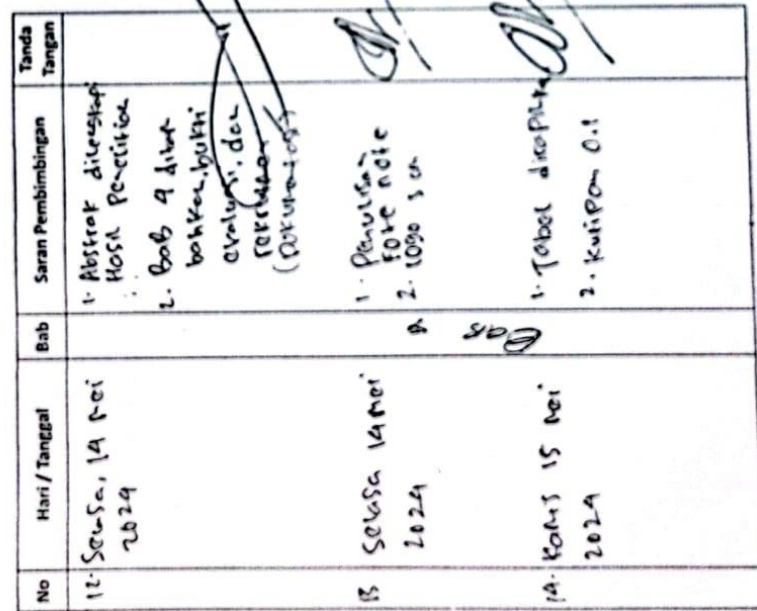 No
Hari / Tanggal
Bab
Saran Pembimbingan
Tanda
Tangan
12. Selasa, 14 Mei
2024
1. Abstrak dilengkapi
Hasil Penelitian
2. Bab 4 ditam
bahkan, bukti
evaluasi, dan
(Dokumentasi)
13
Selasa 14 Mei
2024
1. Penulisan
Fote note
2. Logo 3 cm
14. Kamis 15 Mei
2024
Bab
1. Tabel dirapikan
2. Kutipan 0.1